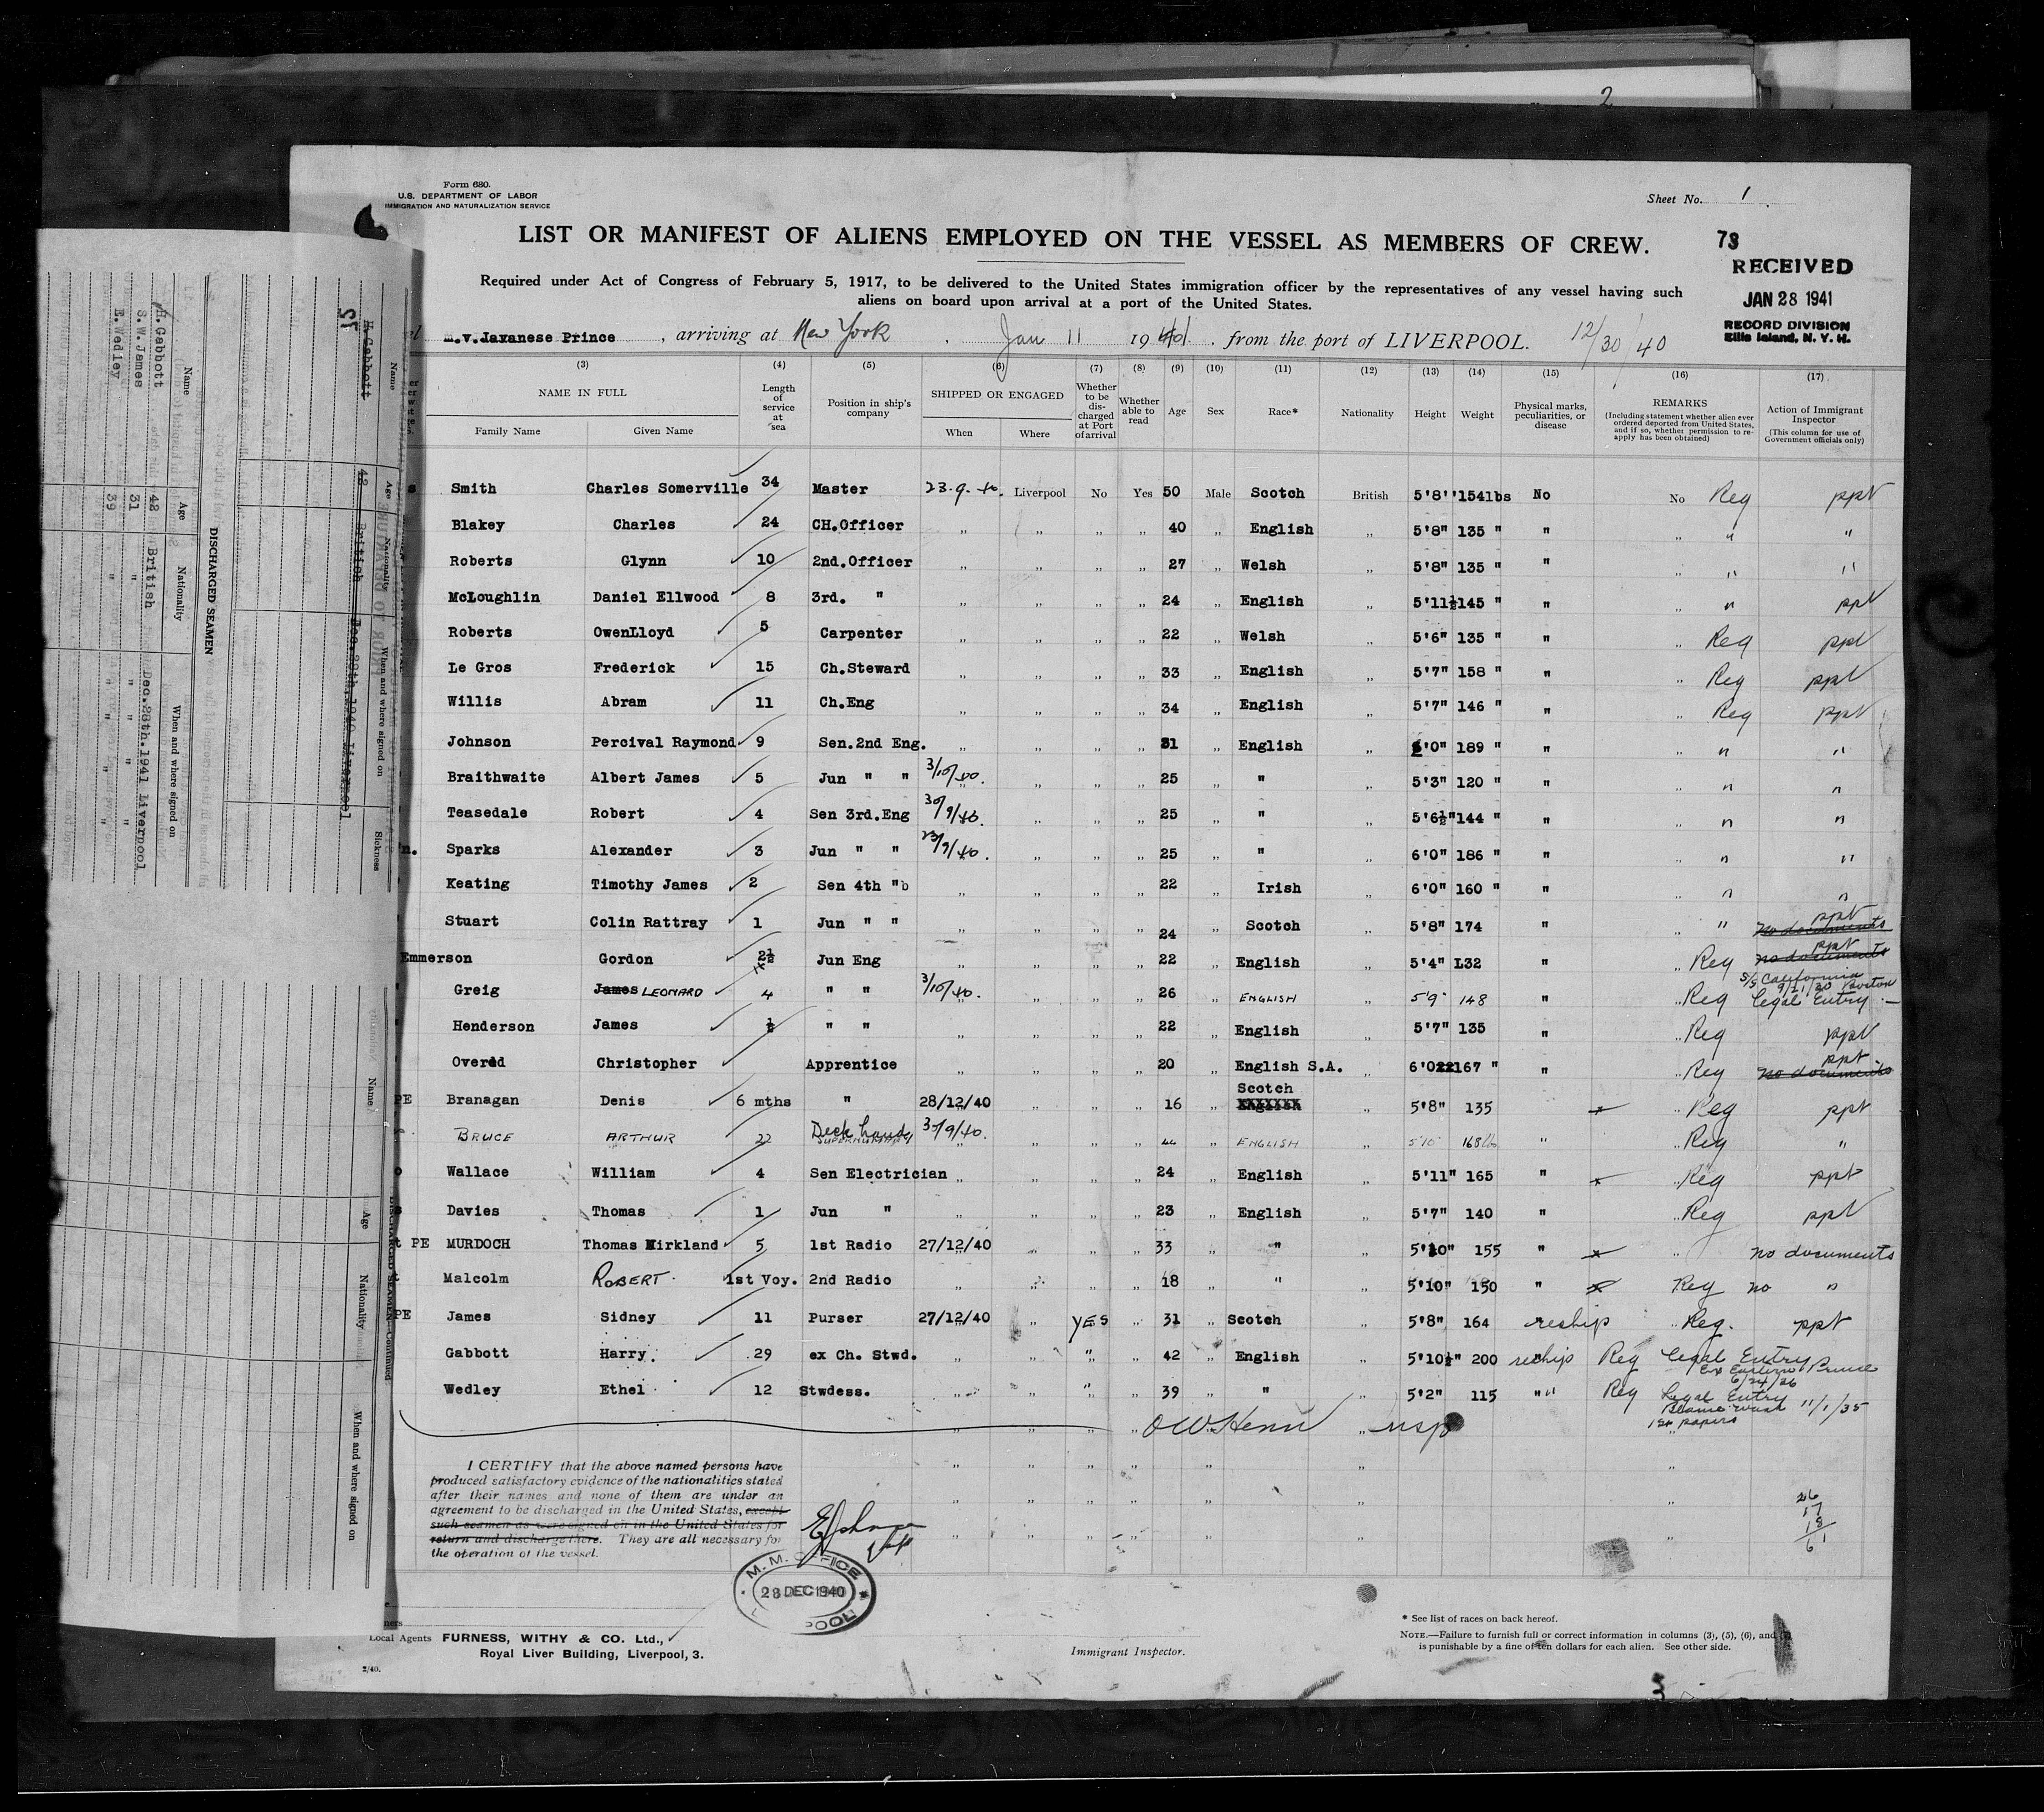 2
Form 680.
U.S. DEPARTMENT OF LABOR
IMMIGRATION AND NATURALIZATION SERVICE
Sheet No. 1
LIST OR MANIFEST OF ALIENS EMPLOYED ON THE VESSEL AS MEMBERS OF CREW.
73
RECEIVED
JAN 28 1941
RECORD DIVISION
Ellis Island, N. Y. H.
Required under Act of Congress of February 5, 1917, to be delivered to the United States immigration officer by the representatives of any vessel having such
aliens on board upon arrival at a port of the United States.
m.v. Javanese Prince, arriving at New York Jan 11 1941. from the port of LIVERPOOL. 12/30/40
(3) (4) (5) (6) (7) (8) (9) (10) (11) (12) (13) (14) (15) (16) (17)
NAME IN FULL
Family Name Given Name
Length of service at sea
Position in ship's company
SHIPPED OR ENGAGED
When Where
Whether to be discharged at Port of arrival
Whether able to read
Age Sex Race* Nationality Height Weight
Physical marks, peculiarities, or disease
REMARKS
(Including statement whether alien ever ordered deported from United States, and if so, whether permission to re-apply has been obtained)
Action of Immigrant Inspector
(This column for use of Government officials only)
Smith Charles Somerville 34 Master 23.9.40. Liverpool No Yes 50 Male Scotch British 5'8" 154lbs No No Reg ppt
Blakey Charles 24 CH.Officer " " " " 40 " English " 5'8" 135 " " " " "
Roberts Glynn 10 2nd.Officer " " " " 27 " Welsh " 5'8" 135 " " " " "
McLoughlin Daniel Ellwood 8 3rd. " " " " " 24 " English " 5'11½ 145 " " " " ppt
Roberts OwenLloyd 5 Carpenter " " " " 22 " Welsh " 5'6" 135 " " " Reg ppt
Le Gros Frederick 15 Ch.Steward " " " " 33 " English " 5'7" 158 " " " Reg ppt
Willis Abram 11 Ch.Eng " " " " 34 " English " 5'7" 146 " " " Reg ppt
Johnson Percival Raymond 9 Sen.2nd Eng. " " " " 31 " English " 6'0" 189 " " " " "
Braithwaite Albert James 5 Jun " " 3/10/40. " " " 25 " " " 5'3" 120 " " " " "
Teasedale Robert 4 Sen 3rd.Eng 30/9/40. " " " 25 " " " 5'6½" 144 " " " " "
Sparks Alexander 3 Jun " " 23/9/40. " " " 25 " " " 6'0" 186 " " " " "
Keating Timothy James 2 Sen 4th " " " " " 22 " Irish " 6'0" 160 " " " " "
Stuart Colin Rattray 1 Jun " " " " " " 24 " Scotch " 5'8" 174 " " " ppt no documents
Emmerson Gordon 2½ Jun Eng " " " " 22 " English " 5'4" L32 " " Reg ppt no documents
Greig James LEONARD 4 " " 3/10/40. " " " 26 " ENGLISH " 5'9" 148 " " Reg S/S California 9/21/30 Boston Legal Entry.
Henderson James ½ " " " " " " 22 " English " 5'7" 135 " " Reg ppt
Overed Christopher Apprentice " " " " 20 " English S.A. " 6'0 167 " " " Reg ppt no documents
PE Branagan Denis 6 mths " 28/12/40 " " " 16 " Scotch English " 5'8" 135 " Reg ppt
BRUCE ARTHUR 22 Deck hand SUPERNUMERARY 30/9/40. " " " 44 " ENGLISH " 5'10" 168lb " " Reg "
Wallace William 4 Sen Electrician " " " " 24 " English " 5'11" 165 " " Reg ppt
Davies Thomas 1 Jun " " " " " 23 " English " 5'7" 140 " " Reg ppt
PE MURDOCH Thomas Kirkland 5 1st Radio 27/12/40 " " " 33 " " " 5'10" 155 " " no documents
Malcolm ROBERT. 1st Voy. 2nd Radio " " " " 18 " " " 5'10" 150 " Reg no "
PE James Sidney 11 Purser 27/12/40 " YES " 31 " Scotch " 5'8" 164 reship " Reg. ppt
Gabbott Harry. 29 ex Ch. Stwd. " " " " 42 " English " 5'10½" 200 reship Reg Legal Entry Ex Eastern Prince 6/24/26
Wedley Ethel 12 Stwdess. " " " " 39 " " " 5'2" 115 " " Reg Legal Entry 11/1/35
1st papers
I CERTIFY that the above named persons have
produced satisfactory evidence of the nationalities stated
after their names and none of them are under an
agreement to be discharged in the United States, except
such seamen as were signed on in the United States for
return and discharge there. They are all necessary for
the operation of the vessel.
26
17
18
61
M. M. OFFICE
28 DEC 1940
POOL
Local Agents FURNESS, WITHY & CO. Ltd.,
Royal Liver Building, Liverpool, 3.
2/40.
Immigrant Inspector.
* See list of races on back hereof.
NOTE.—Failure to furnish full or correct information in columns (3), (5), (6), and
is punishable by a fine of ten dollars for each alien. See other side.
DISCHARGED SEAMEN
Name Age Nationality When and where signed on
H. Gabbott 42 British Dec. 28th. 1941 Liverpool
S.W. James 31 " " "
E. Wedley 39 " " "
Name Age Nationality When and where signed on Sickness
H. Gabbott 42 British Dec. 28th, 1940 Liverpool
15
DISCHARGED SEAMEN—Continued
Name Age Nationality When and where signed on